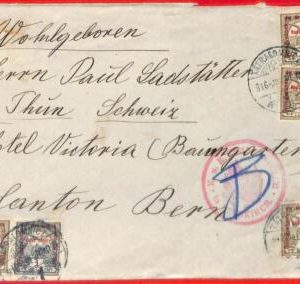 Wohlgeboren
Herrn Paul Sadstätter
Thun Schweiz
Hotel Victoria (Baumgarten
Canton Bern